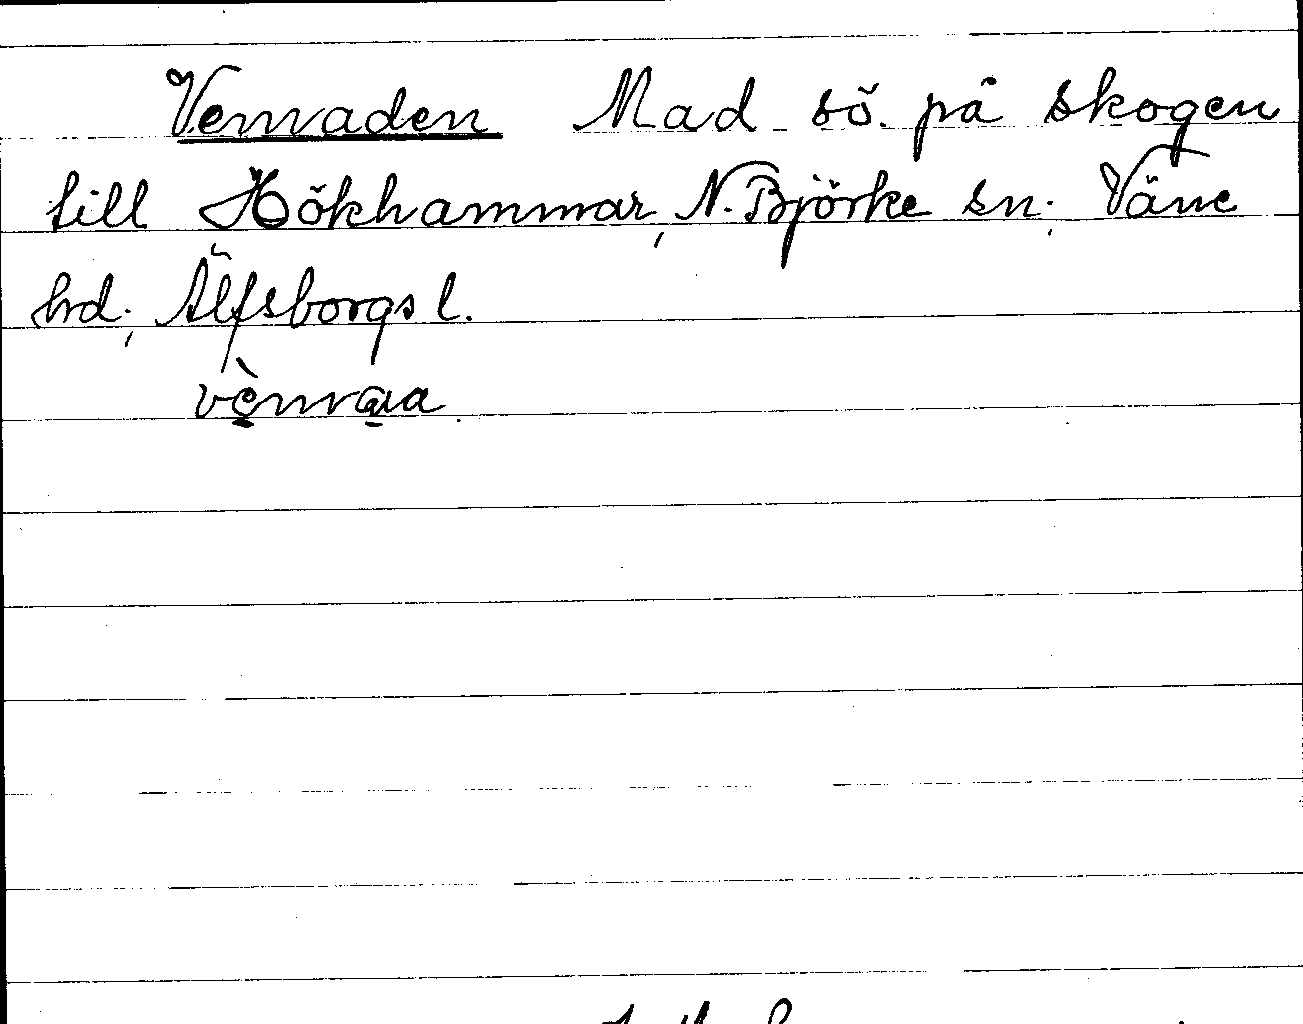 Vemvaden Mad sö. på skogen
till Hökhammar, N. Björke sn; Väne
hd; Älfsborgs l.